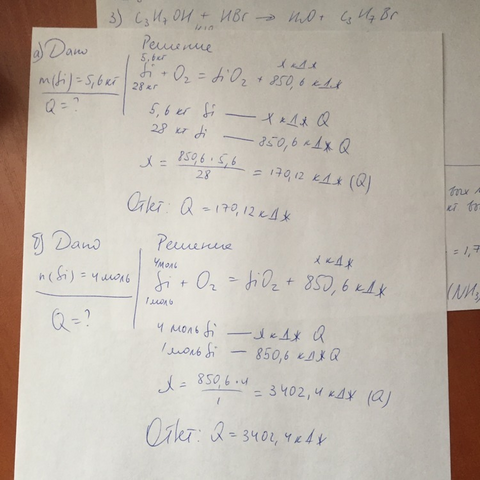 3) C3H7OH + HBr → H2O + C3H7Br
а) Дано
Решение
m(Si) = 5,6 кг
Q = ?
5,6 кг
x кДж
Si + O2 = SiO2 + 850,6 кДж
28 кг
5,6 кг Si — x кДж Q
28 кг Si — 850,6 кДж Q
x = 850,6 · 5,6 / 28 = 170,12 кДж (Q)
Ответ: Q = 170,12 кДж
б) Дано
Решение
n(Si) = 4 моль
Q = ?
4 моль
x кДж
Si + O2 = SiO2 + 850,6 кДж
1 моль
4 моль Si — x кДж Q
1 моль Si — 850,6 кДж Q
x = 850,6 · 4 / 1 = 3402,4 кДж (Q)
Ответ: Q = 3402,4 кДж
= 1,7
(NH3